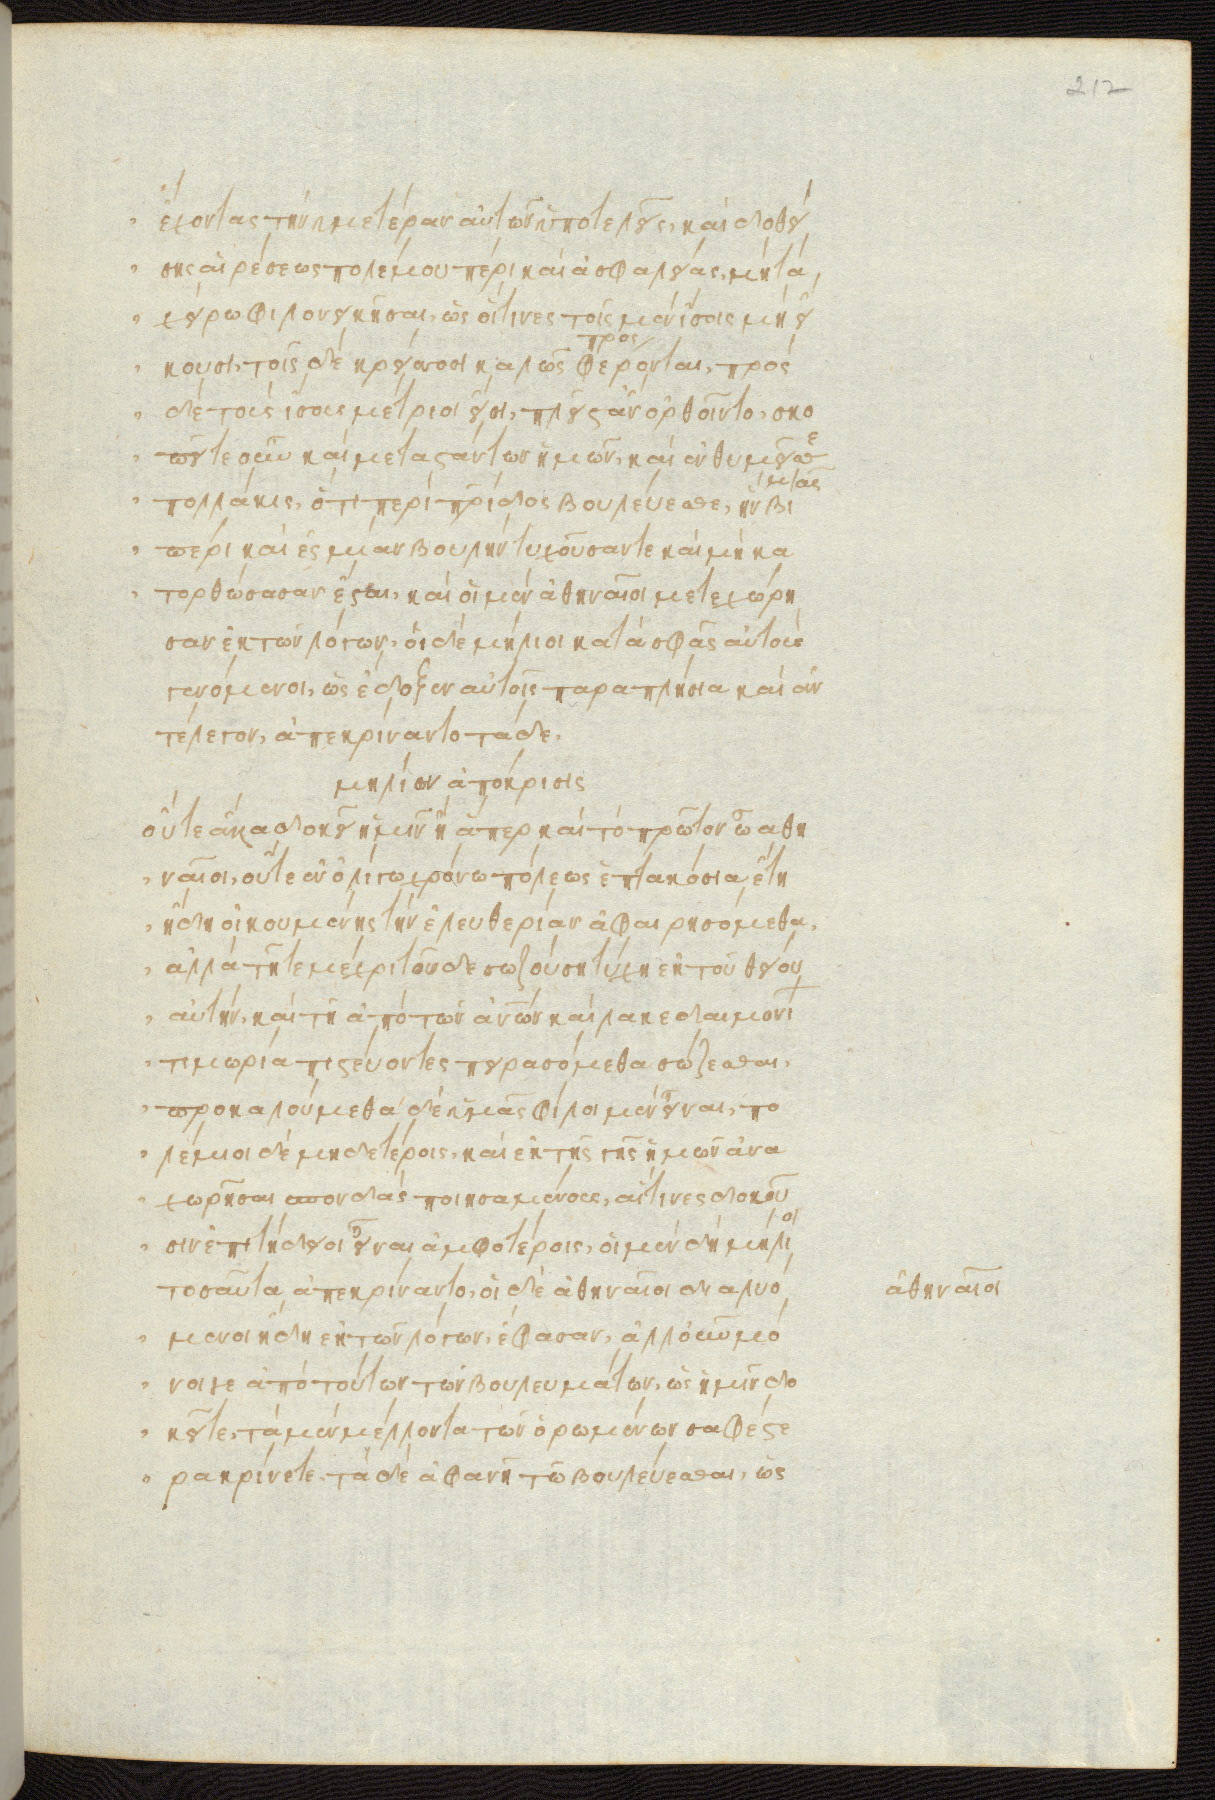 212
ἔχοντας τὴν ἡμετέραν αὐτῶν ὑποτελεῖς, καὶ δοθεί
σης αἱρέσεως πολέμου πέρι καὶ ἀσφαλείας, μὴ τὰ
χείρω φιλονεικῆσαι, ὡς οἵτινες τοῖς μὲν ἴσοις μὴ εἴ
προσ
κουσι, τοῖς δὲ κρείσσοσι καλῶς φέρονται, πρὸς
δὲ τοὺς ἥσσους μέτριοι εἰσι, πλεῖστ᾽ ἂν ὀρθοῖντο, σκο
πεῖτε οὖν καὶ μεταστάντων ἡμῶν, καὶ ἐνθυμεῖσθε
πολλάκις, ὅτι περὶ πατρίδος βουλεύεσθε, ἣν
μιᾶς
πέρι καὶ ἐς μίαν βουλὴν τυχοῦσάν τε καὶ μὴ κα
τορθώσασαν ἔσται, καὶ οἱ μὲν ἀθηναῖοι μετεχώρη
σαν ἐκ τῶν λόγων, οἱ δὲ μήλιοι κατὰ σφᾶς αὐτοὺς
γενόμενοι, ὡς ἔδοξεν αὐτοῖς παραπλήσια καὶ ἀν
τέλεγον, ἀπεκρίναντο τάδε.
μηλίων ἀπόκρισις
οὔτε ἄλλα δοκεῖ ἡμῖν ἢ ἅπερ καὶ τὸ πρῶτον ὦ ἀθη
ναῖοι, οὔτε ἐν ὀλίγω χρόνω πόλεως ἑπτακόσια ἔτη
ἤδη οἰκουμένης τὴν ἐλευθερίαν ἀφαιρησόμεθα,
ἀλλὰ τῆ τε μέχρι τοῦδε σωζούση τύχη ἐκ τοῦ θείου
αὐτὴν, καὶ τῆ ἀπὸ τῶν ἀνῶν καὶ λακεδαιμονί
τιμωρία πιστεύοντες πειρασόμεθα σώζεσθαι,
προκαλούμεθα δὲ ὑμᾶς φίλοι μὲν εἶναι, πο
λέμιοι δὲ μηδετέροις, καὶ ἐκ τῆς γῆς ἡμῶν ἀνα
χωρῆσαι σπονδὰς ποιησαμένους, αἵτινες δοκοῦ
σιν ἐπιτήδειοι εἶναι ἀμφοτέροις, οἱ μὲν δὴ μήλιοι
τοσαῦτα ἀπεκρίναντο, οἱ δὲ ἀθηναῖοι διαλυό
ἀθηναῖοι
μενοι ἤδη ἐκ τῶν λόγων, ἔφασαν, ἀλλ᾽ οὖν μό
νοι γε ἀπὸ τούτων τῶν βουλευμάτων, ὡς ἡμῖν δο
κεῖτε, τὰ μὲν μέλλοντα τῶν ὁρωμένων σαφέστε
ρα κρίνετε, τὰ δὲ ἀφανῆ τῶ βουλεύεσθαι, ὡς